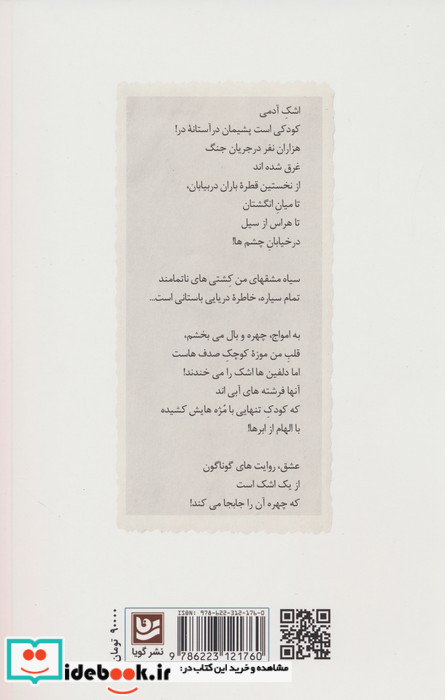 اشکِ آدمی
کودکی است پشیمان در آستانهٔ در!
هزاران نفر در جریان جنگ
غرق شده اند
از نخستین قطرهٔ باران در بیابان،
تا میانِ انگشتان
تا هراس از سیل
در خیابانِ چشم ها!
سیاه مشقهای من کِشتی های ناتمامند
تمام سیاره، خاطرهٔ دریایی باستانی است...
به امواج، چهره و بال می بخشم،
قلبِ من موزهٔ کوچکِ صدف هاست
اما دلفین ها اشک را می خندند!
آنها فرشته های آبی اند
که کودکِ تنهایی با مُژه هایش کشیده
با الهام از ابرها!
عشق، روایت های گوناگون
از یک اشک است
که چهره آن را جابجا می کند!
۹۰۰۰۰ تومان
نشر گویا
ISBN: 978-622-312-176-0
9 786223 121760
idebook.ir
مشاهده و خرید این کتاب در: